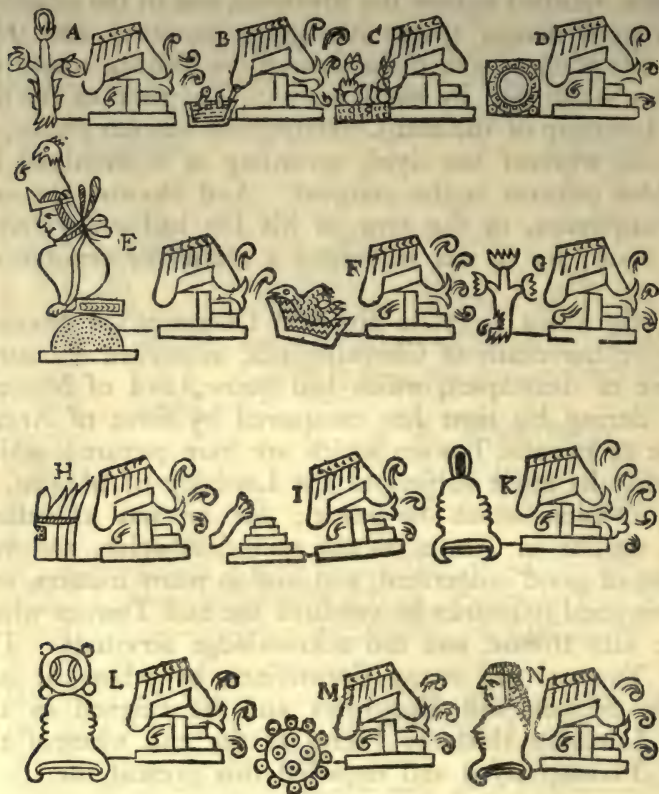 A B C D
E F G
H I K
L M N